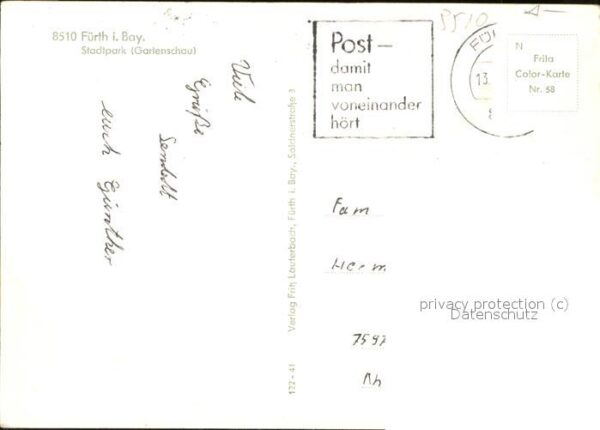 8510 Fürth i. Bay.
Stadtpark (Gartenschau)
Viele
Grüße
Sendet
euch Günther
Verlag Fritz Lauterbach, Fürth i. Bay., Saldnerstraße 3
122 - 41
Post –
damit
man
voneinander
hört
8510
FÜ
13.
8
N
Frila
Color-Karte
Nr. 58
Fam
Herm
7597
Rh
privacy protection (c)
Datenschutz